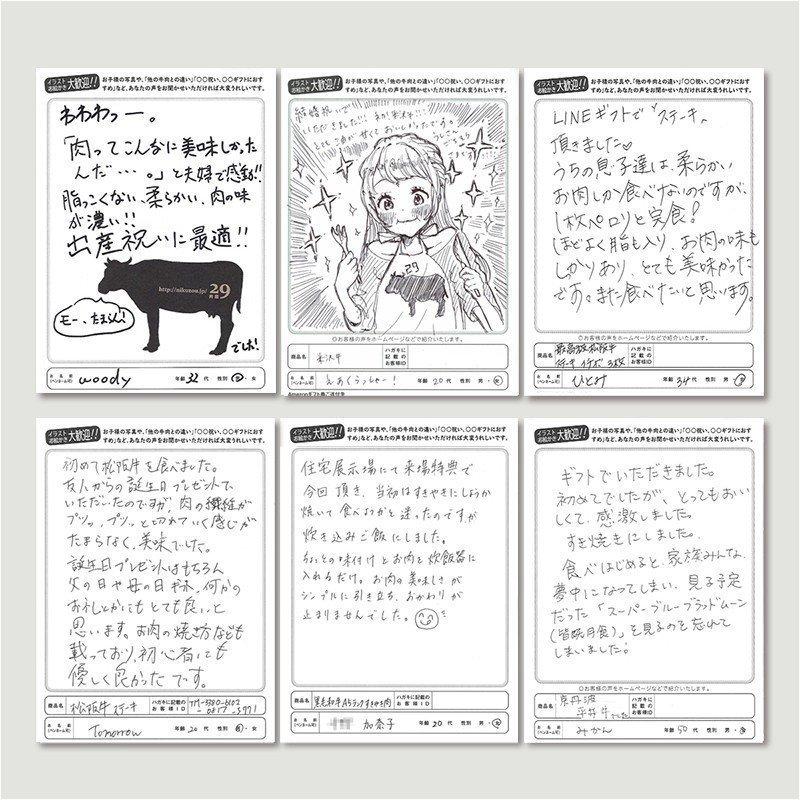 イラスト お絵かき 大歓迎!! お子様の写真や、「他の牛肉との違い」「〇〇祝い、〇〇ギフトにおす
すめ」など、あなたの声をお聞かせいただければ大変うれしいです。
わわわっー。
「肉ってこんなに美味しかった
んだ・・・。」と夫婦で感動!!
脂っこくない、柔らかい、肉の味
が濃い!!
出産祝いに最適!!
http://nikuzou.jp/ 29
モー、たまらん!
でした!
お名前 (ペンネーム可) woody 年齢 32 代 性別 男・女
イラスト お絵かき 大歓迎!! お子様の写真や、「他の牛肉との違い」「〇〇祝い、〇〇ギフトにおす
すめ」など、あなたの声をお聞かせいただければ大変うれしいです。
結婚祝いで
いただきました!!
29
◎お客様の声をホームページなどで紹介いたします。
商品名 米沢牛 ハガキに記載のお客様ID
お名前 (ペンネーム可) えあくらっしゃー! 年齢 20 代 性別 男・女
イラスト お絵かき 大歓迎!! お子様の写真や、「他の牛肉との違い」「〇〇祝い、〇〇ギフトにおす
すめ」など、あなたの声をお聞かせいただければ大変うれしいです。
LINEギフトで「ステーキ」
頂きました♡
うちの息子達は、柔らかい
お肉しか食べないのですが、
1枚ペロリと完食!
ほどよく脂も入り、お肉の味も
しかりあり、とても美味かった
です。また食べたいと思います。
◎お客様の声をホームページなどで紹介いたします。
商品名 最高級松阪牛 ステーキ イチボ 3枚 ハガキに記載のお客様ID
お名前 (ペンネーム可) ひとみ 年齢 34 代 性別 男・女
イラスト お絵かき 大歓迎!! お子様の写真や、「他の牛肉との違い」「〇〇祝い、〇〇ギフトにおす
すめ」など、あなたの声をお聞かせいただければ大変うれしいです。
初めて松阪牛を食べました。
友人からの誕生日プレゼントで
いただいたのですが、肉の繊維が
プツッ、プツッと切れていく感じが
たまらなく、美味でした。
誕生日プレゼントはもちろん
父の日や母の日ギフト、何かの
お礼とかにもとても良いと
思います。お肉の焼き方なども
載っており、初心者にも
優しく良かったです。
商品名 松阪牛ステーキ ハガキに記載のお客様ID
お名前 (ペンネーム可) Tomorrow 年齢 20 代 性別 男・女
イラスト お絵かき 大歓迎!! お子様の写真や、「他の牛肉との違い」「〇〇祝い、〇〇ギフトにおす
すめ」など、あなたの声をお聞かせいただければ大変うれしいです。
住宅展示場にて来場特典で
今回頂き、当初はすきやきにしようか
焼いて食べようかと迷ったのですが
炊き込みご飯にしました。
ちょっとの味付けとお肉を炊飯器に
入れるだけ。お肉の美味しさが
シンプルに引き立ち、おかわりが
止まりませんでした。
商品名 黒毛和牛A5ランクすきやき肉 ハガキに記載のお客様ID
お名前 (ペンネーム可) 加奈子 年齢 30 代 性別 男・女
イラスト お絵かき 大歓迎!! お子様の写真や、「他の牛肉との違い」「〇〇祝い、〇〇ギフトにおす
すめ」など、あなたの声をお聞かせいただければ大変うれしいです。
ギフトでいただきました。
初めてでしたが、とってもおい
しくて、感激しました。
すき焼きにしました。
食べはじめると、家族みんな、
夢中になってしまい、見る予定
だった「スーパーブルーブラッドムーン
(皆既月食)」を見るのを忘れて
しまいました!
◎お客様の声をホームページなどで紹介いたします。
商品名 京丹波 平井牛 ハガキに記載のお客様ID
お名前 (ペンネーム可) みかん 年齢 50 代 性別 男・女